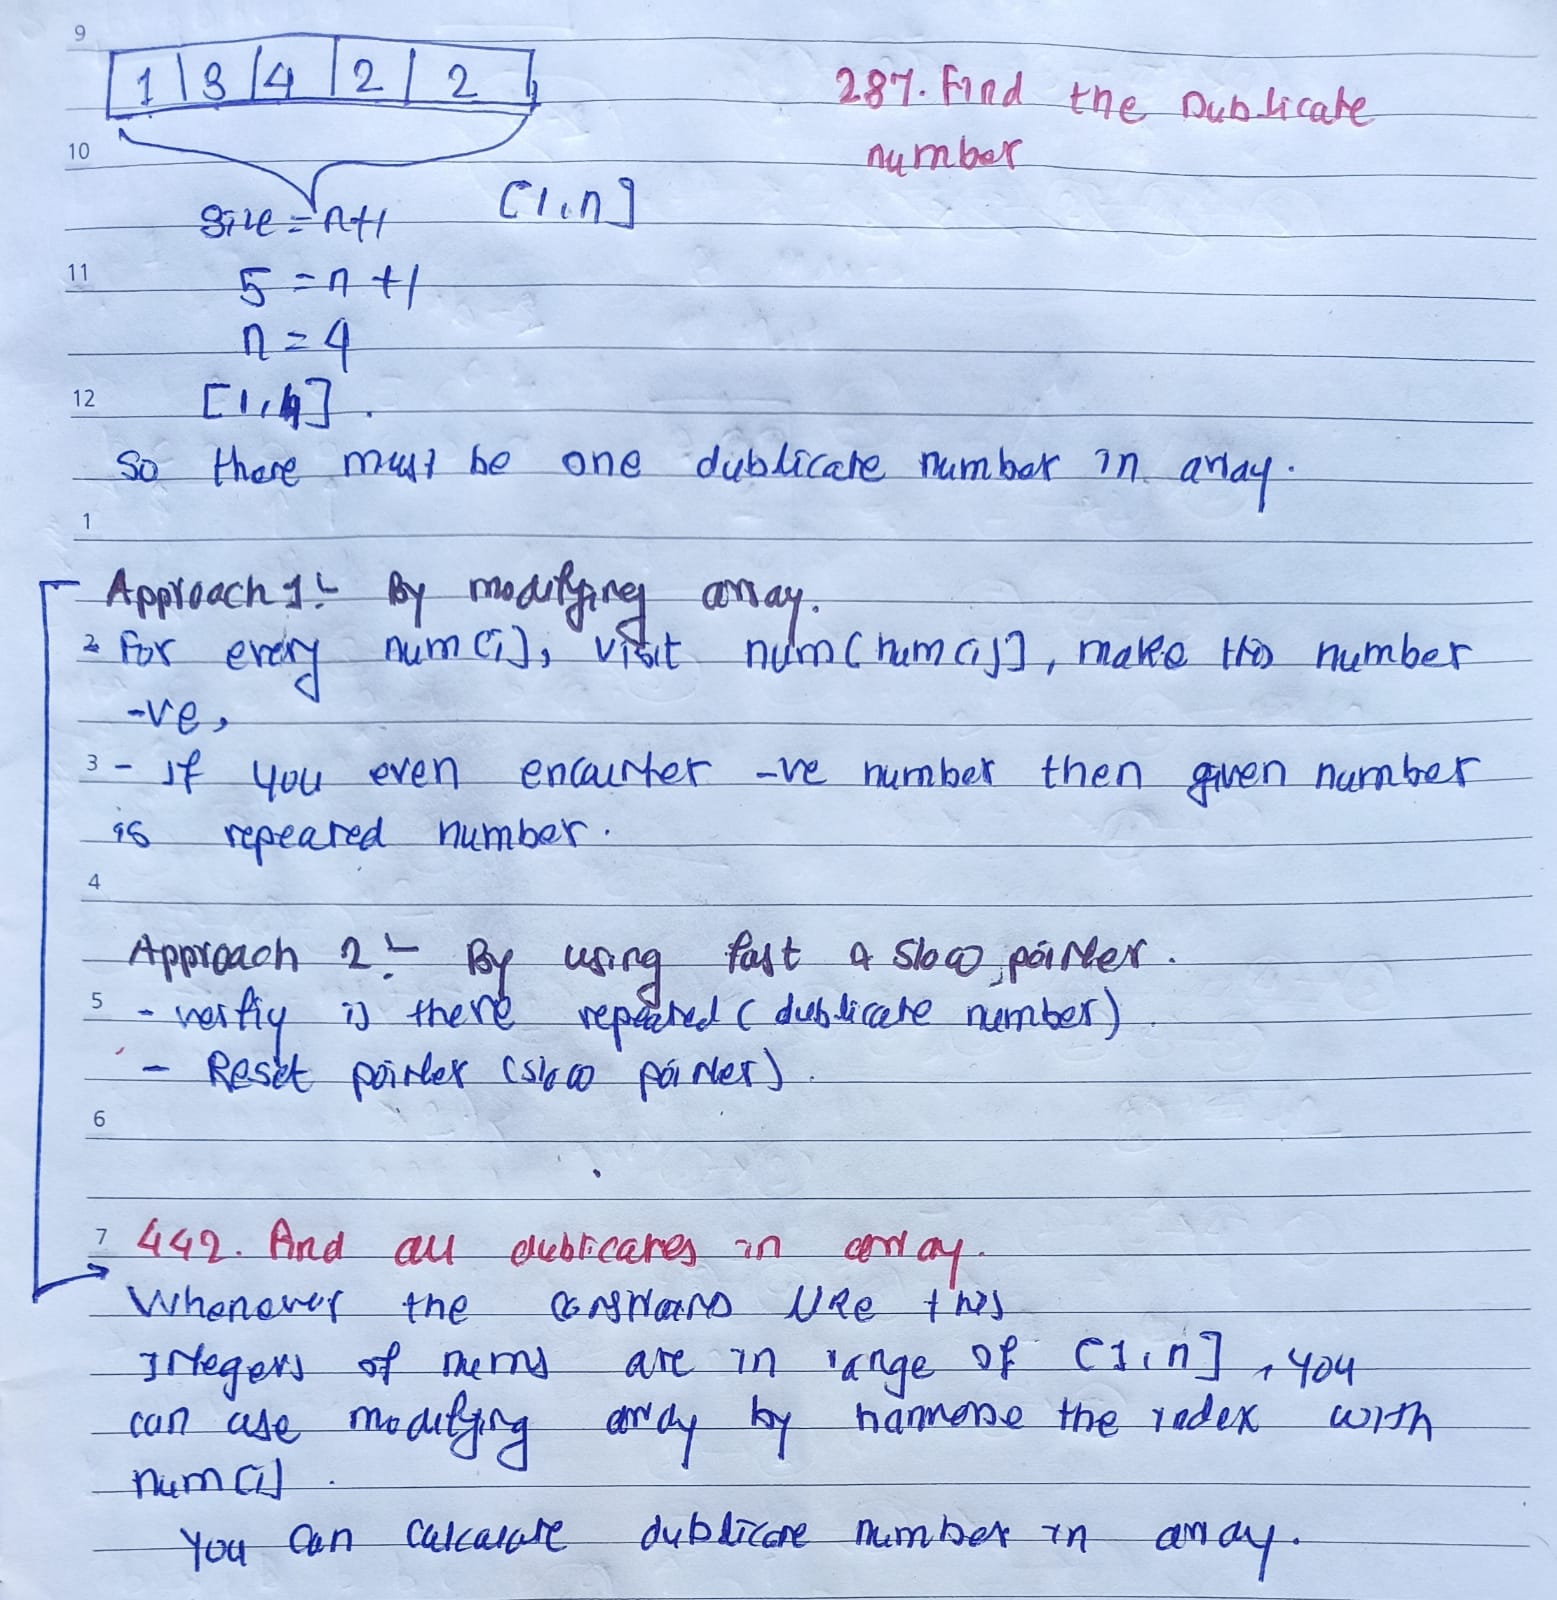 9
1 | 3 | 4 | 2 | 2
287. Find the Dublicate
number
10
size = n+1 [1,n]
11
5 = n+1
n = 4
12
[1,4].
So there must be one dublicate number in array.
1
Approach 1:- By modifying array.
2 For every num[i], visit num[num[i]], make this number
-ve,
3 - If you even encounter -ve number then given number
is repeated number.
4
Approach 2:- By using fast & slow pointer.
5 - verfiy is there repeated (dublicate number)
- Reset pointer (slow pointer).
6
7 442. Find all dublicates in array.
Whenever the like this
Integers of nums are in range of [1,n], you
can use modifying array by the index with
num[i]
You can calculate dublicate number in array.